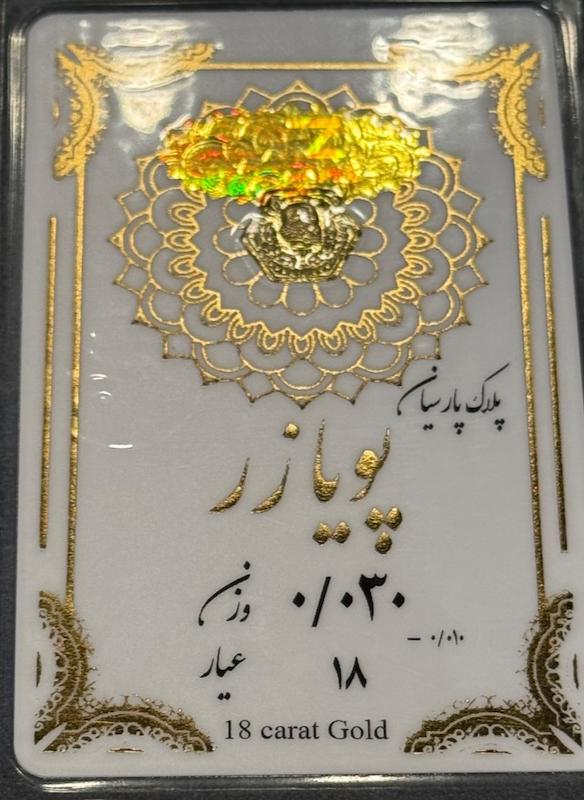 پلاک پارسیان
پویا زر
وزن ۰/۰۳۰
- ۰/۰۱۰
عیار ۱۸
18 carat Gold